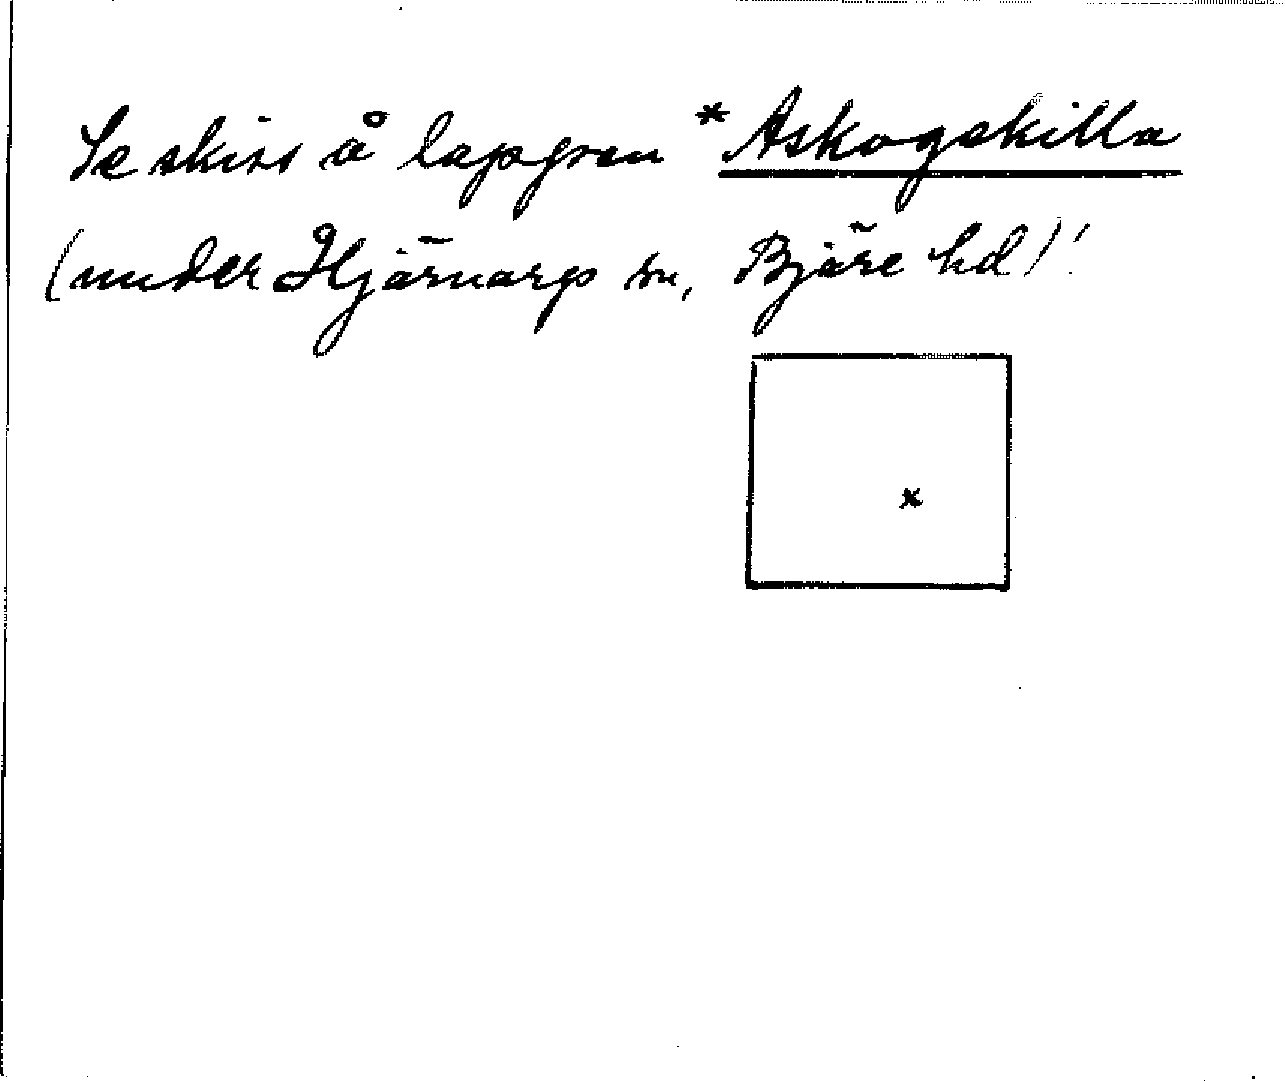 Se skiss å lappen *Askogskilla
(under Hjärnarps sn, Bjäre hd)!
x